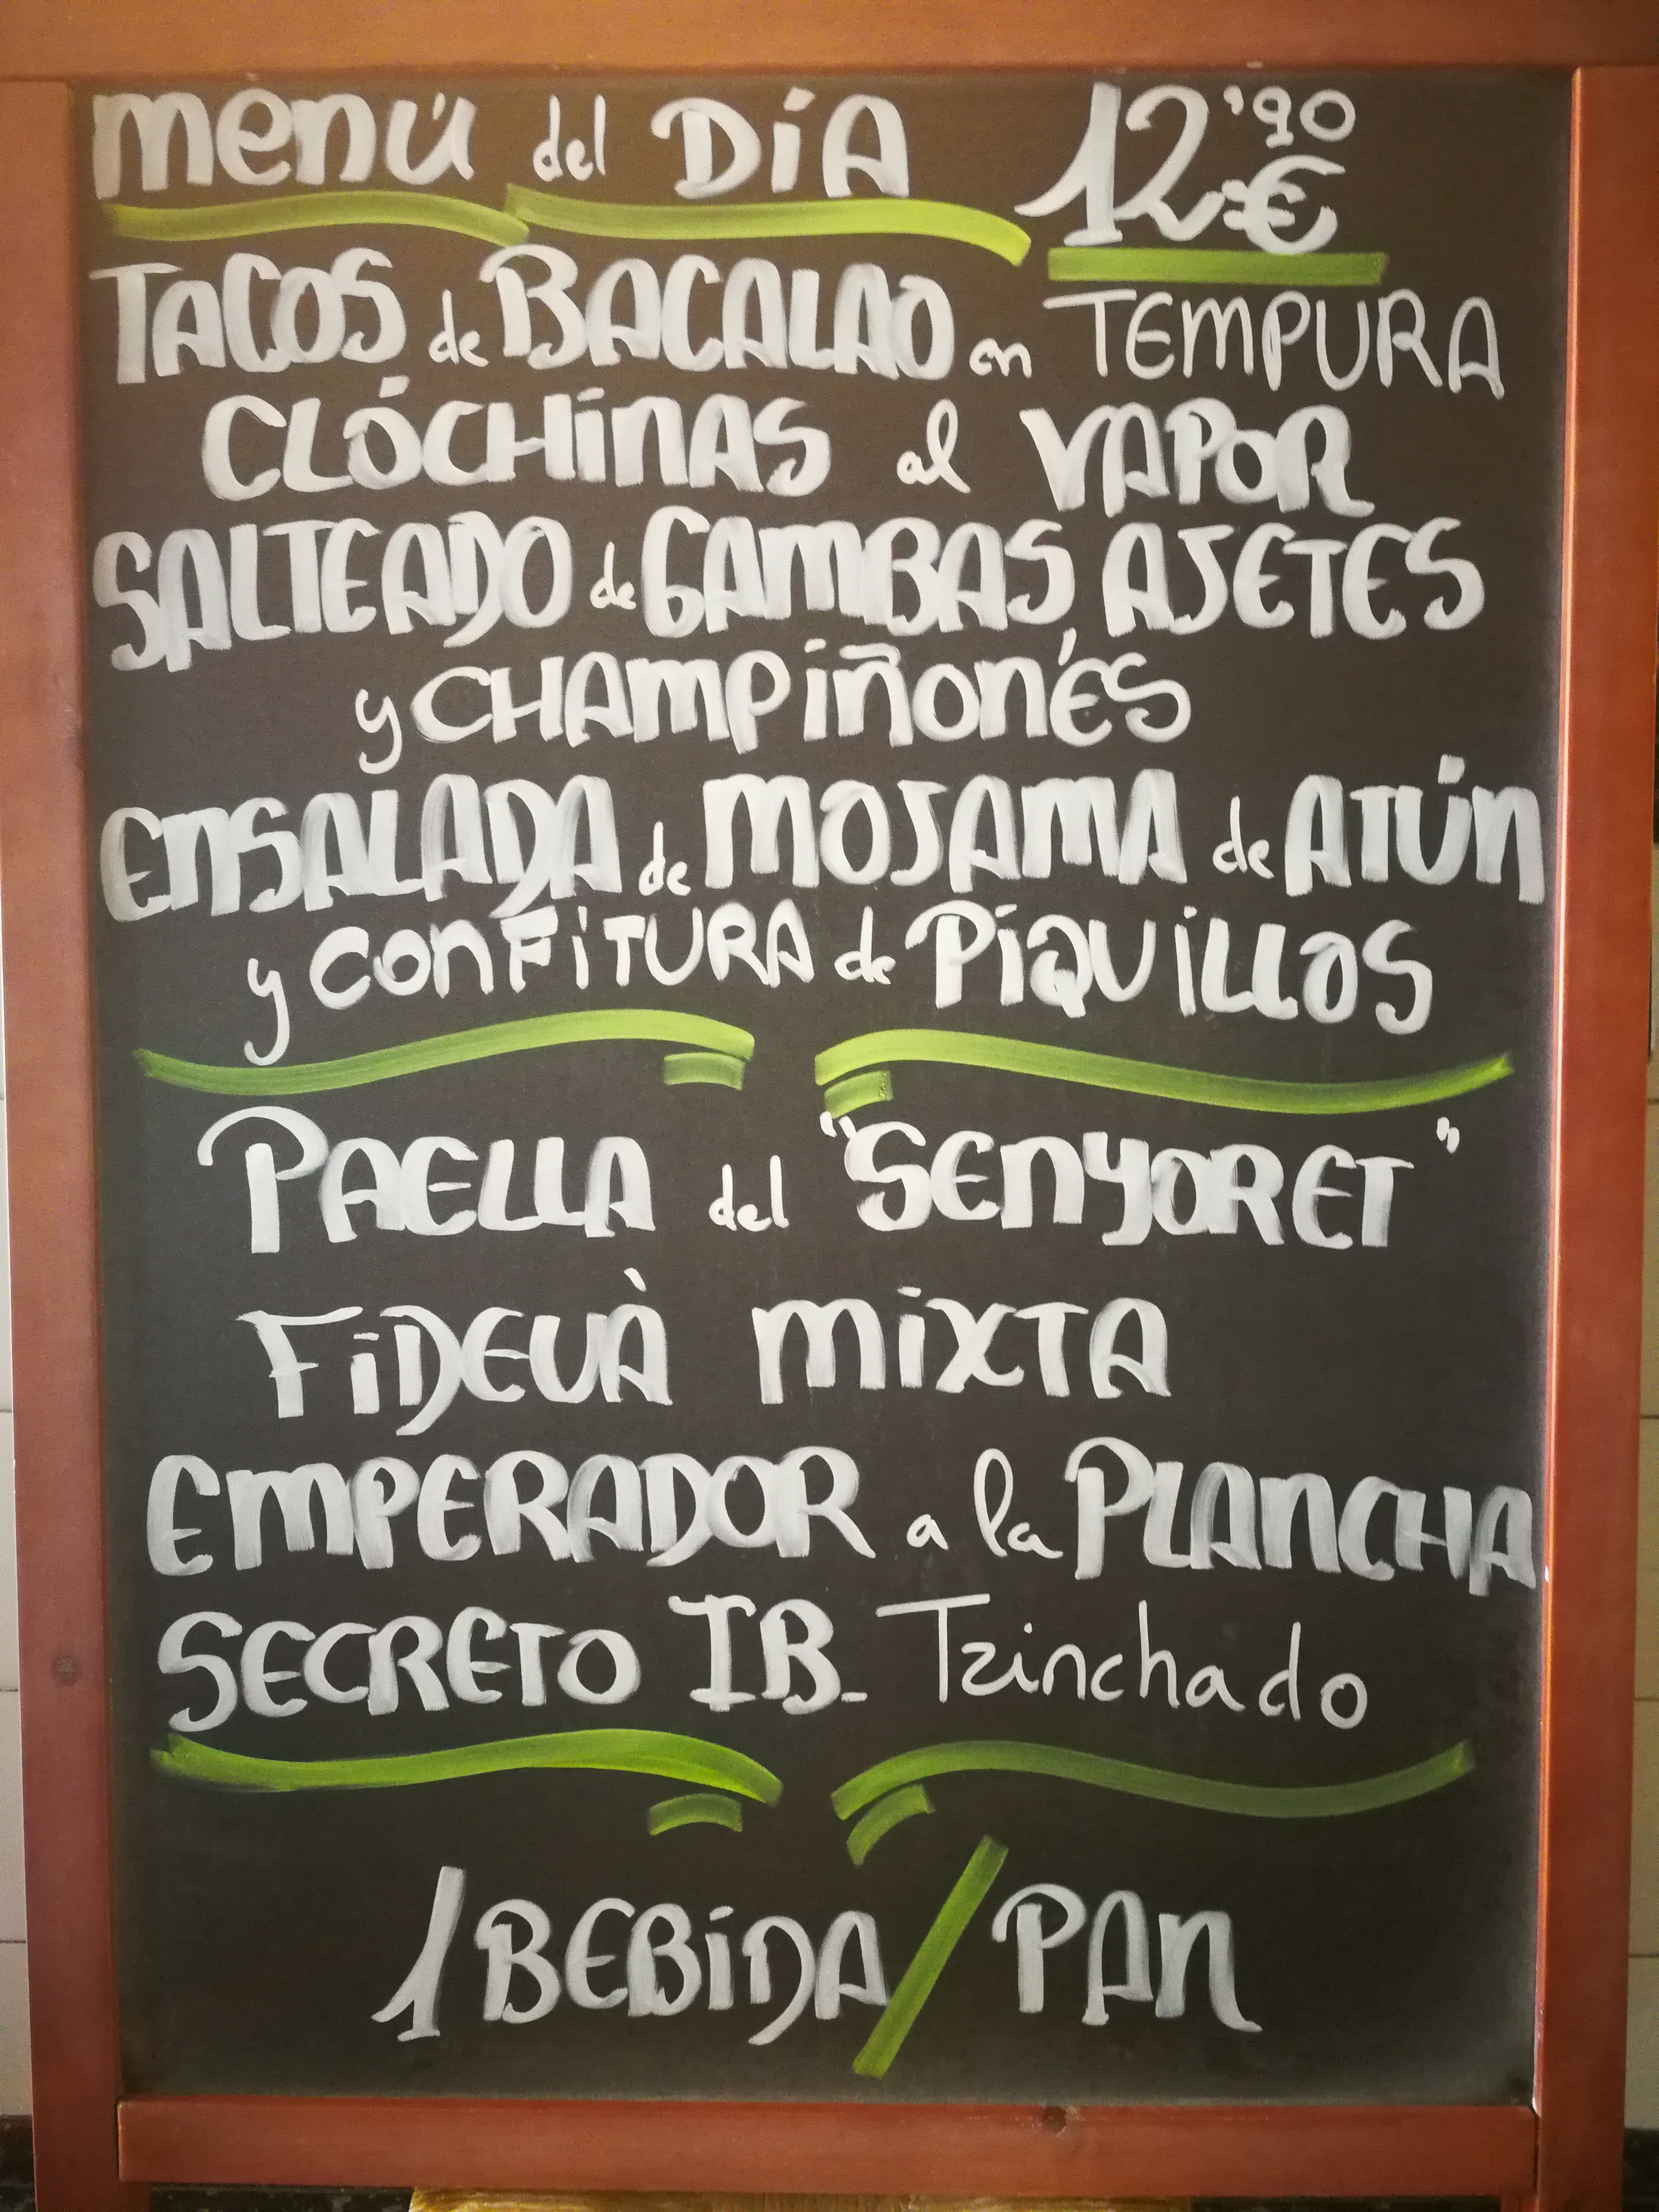 menú del DíA 12'90€
TACOS de BACALAO en TEMPURA
CLÓCHINAS al VAPOR
SALTEADO de GAMBAS, AJETES
y CHAMPIÑONES
ENSALADA de MOJAMA de ATÚN
y CONFITURA de PIQUILLOS
PAELLA del "SENYORET"
FIDEUÀ MIXTA
EMPERADOR a la PLANCHA
SECRETO IB. Trinchado
1 BEBIDA / PAN